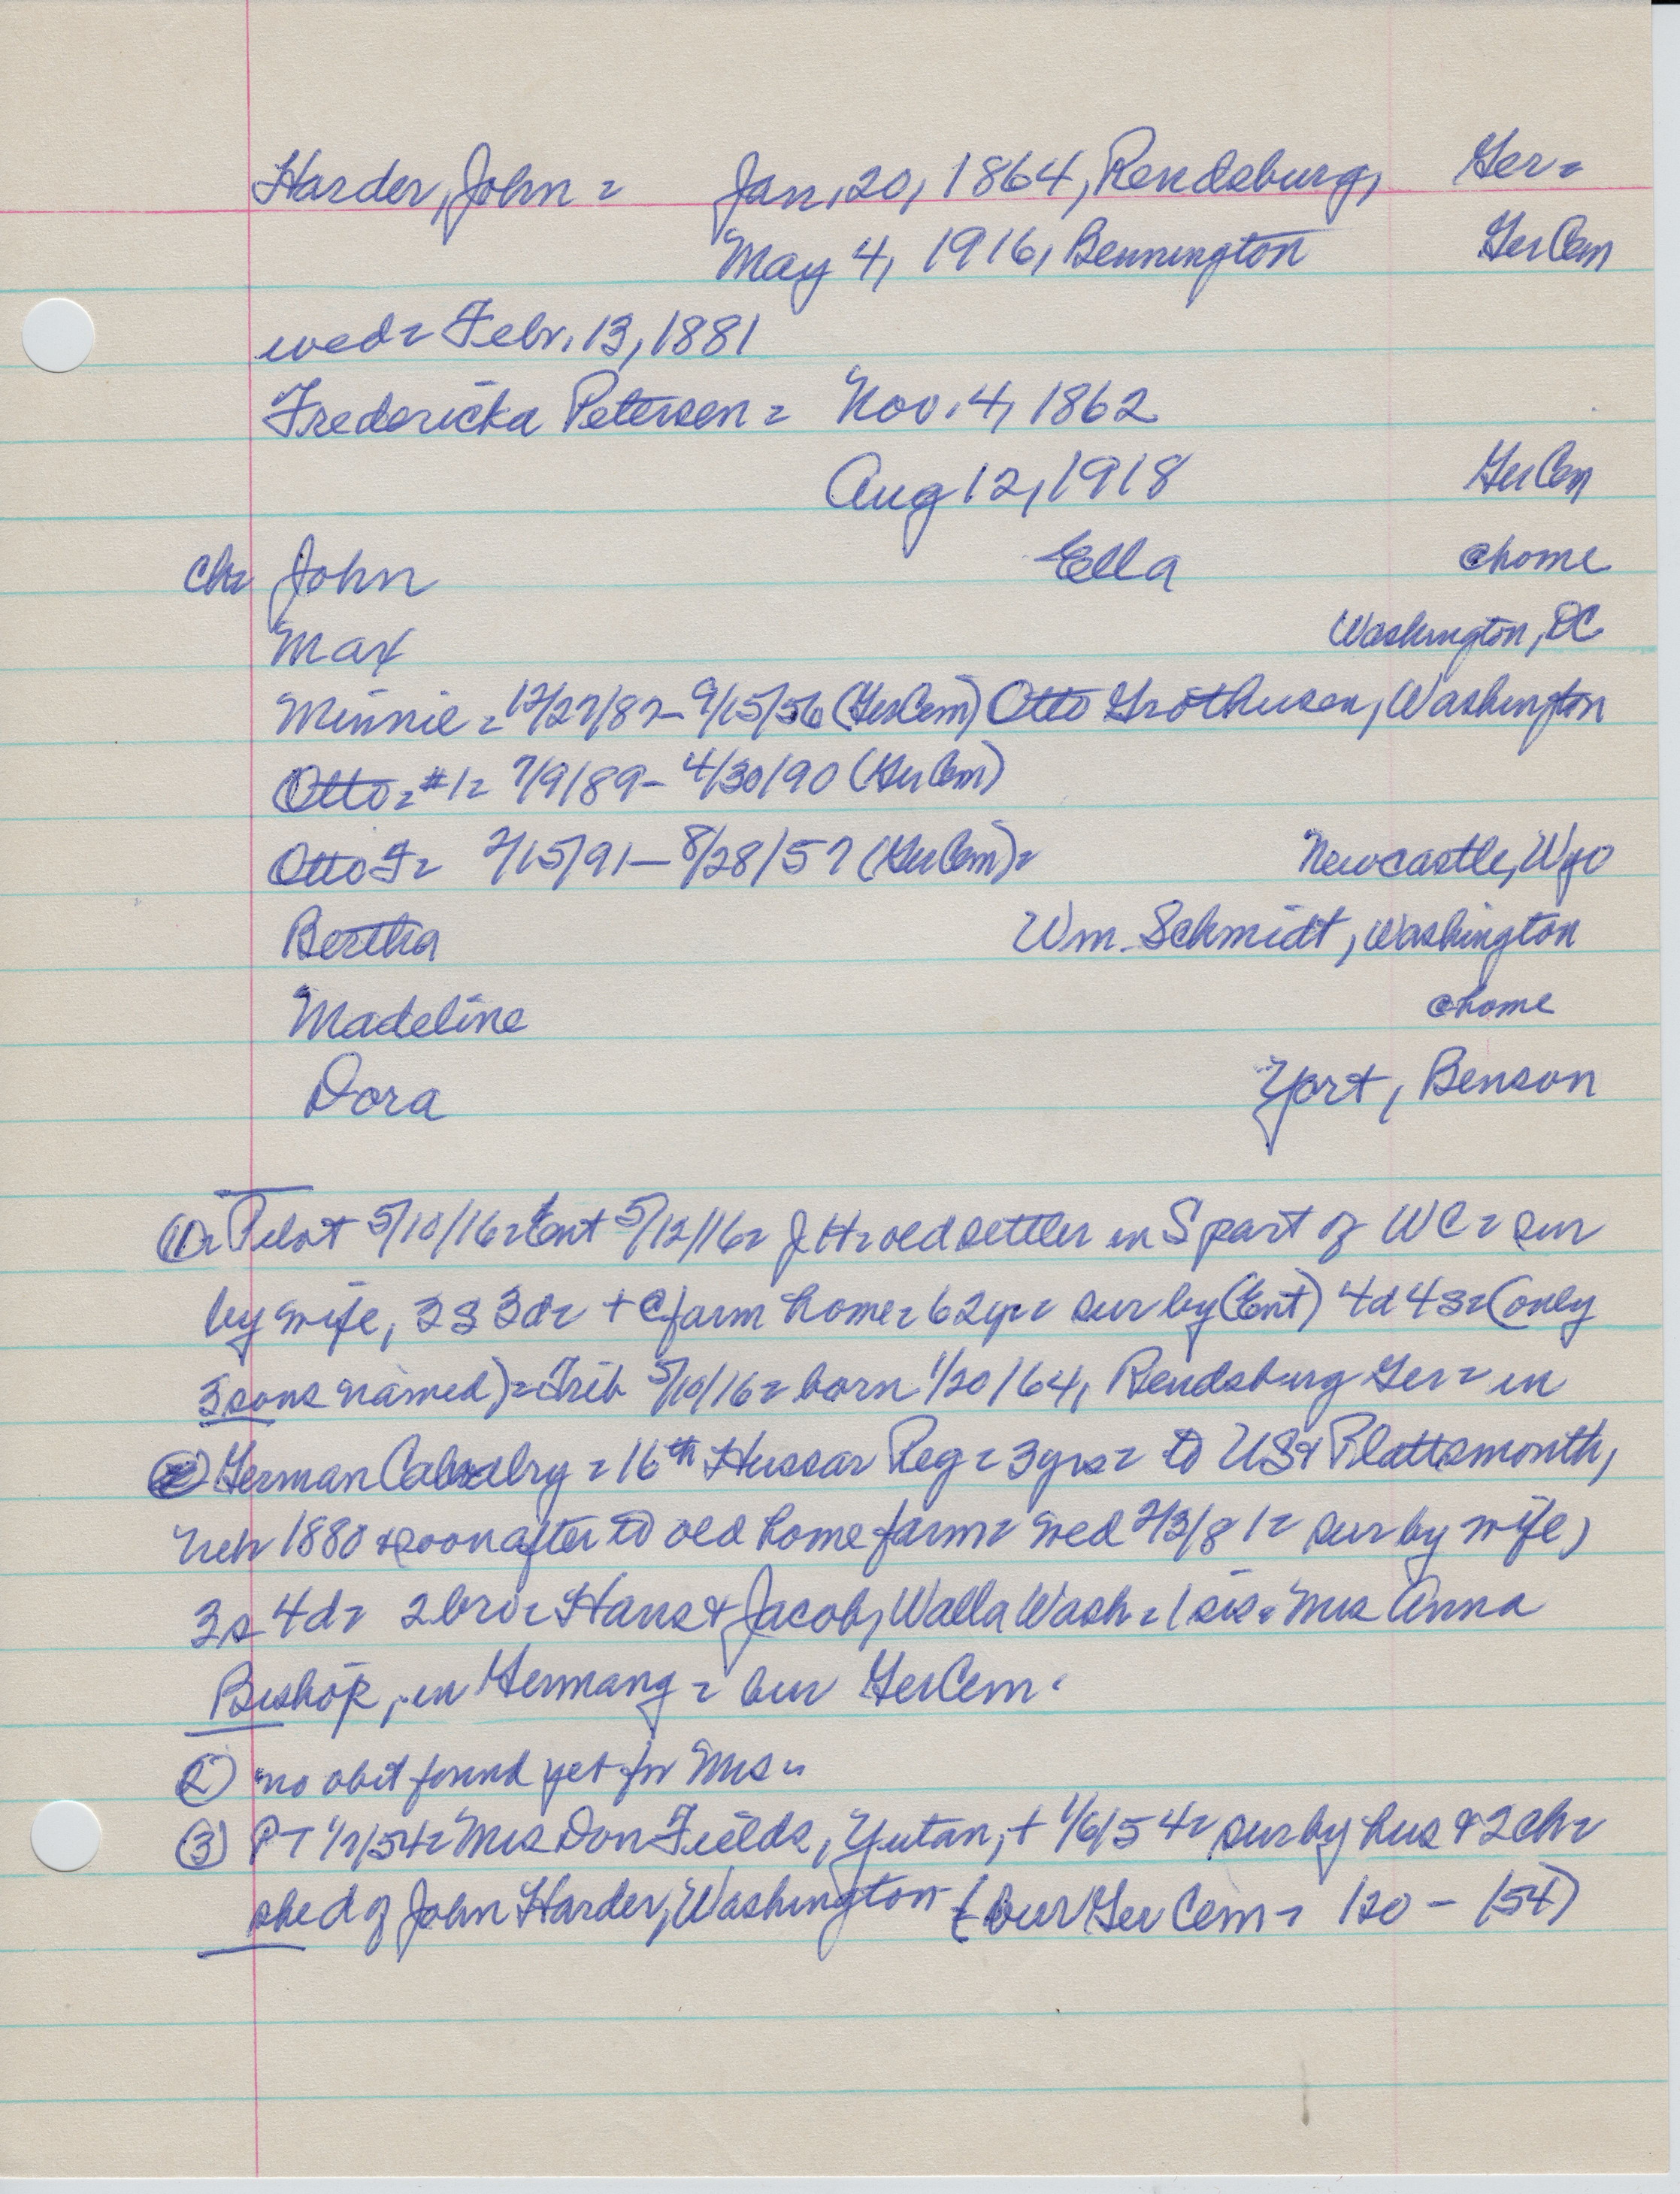 Harder, John = Jan, 20, 1864, Rendsburg, Ger =
May 4, 1916, Bennington GerCem
wed = Febr. 13, 1881
Fredericka Petersen = Nov. 4, 1862
Aug 12, 1918 GerCem
ch = John Ella @home
Max Washington, DC
Minnie = 12/27/87 - 9/15/56 (GerCem) Otto Grothusen, Washington
Otto = #1 = 7/9/89 - 4/30/90 (GerCem)
Otto F = 2/15/91 - 8/28/57 (GerCem) = Newcastle, Wyo
Bertha Wm. Schmidt, Washington
Madeline @home
Dora Yort, Benson
(1) = Pilot 5/10/16 = Ent 5/12/16 = JH = old settler in S part of WC = sur
by wife, 3s 3d = + @ farm home = 62yr = sur by (Ent) 4d 4s = (only
3 sons named) = Trib 5/10/16 = born 1/20/64, Rendsburg Ger = in
German Calvalry = 16th Hussar Reg = 3yrs = to US & Plattsmouth,
Neb 1880 & soon after to old home farm = wed 2/3/81 = sur by wife,
3s 4d = 2 bro = Hans & Jacob, Walla Wash = 1 sis = Mrs Anna
Bishop, in Germany = bur GerCem.
(2) no obit found yet for Mrs =
(3) PT 1/7/54 = Mrs Don Fields, Yutan, + 1/6/54 = sur by hus & 2ch =
she d of John Harder, Washington - (bur Ger Cem = 120 - 154)